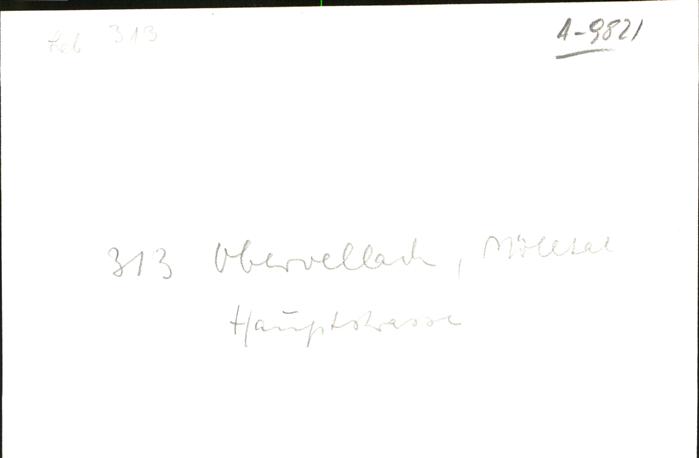 313
A-9821
313 Obervellach, Mölltal
Hauptstrasse